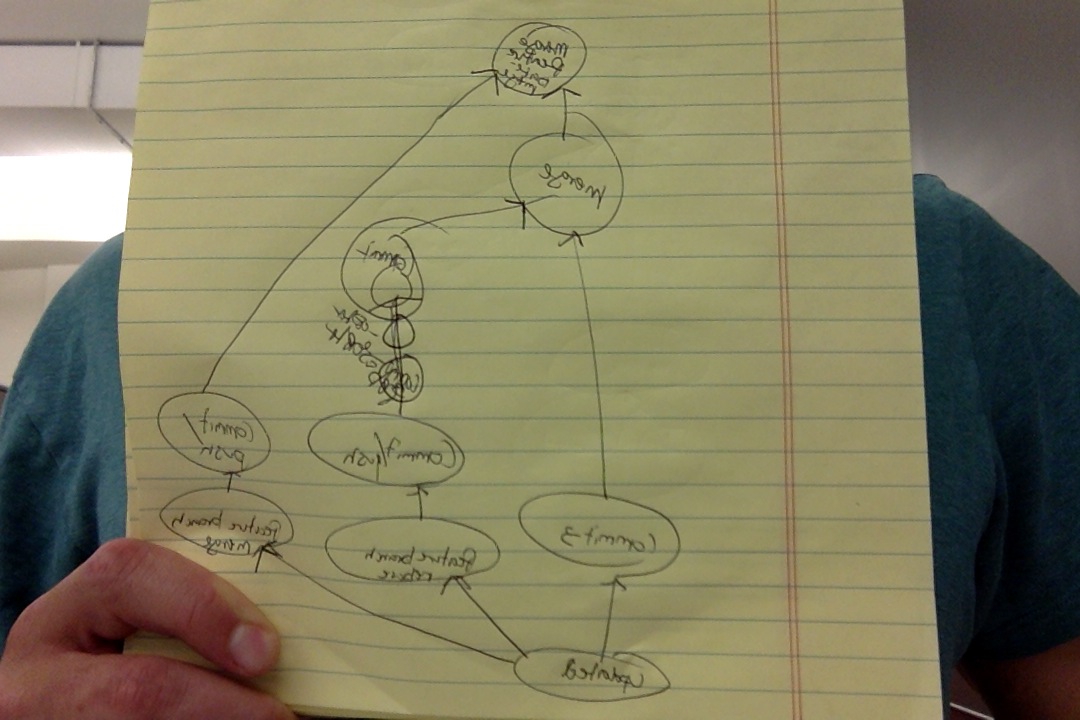 merge
feature
merge
commit
commit/
push
commit/push
feature branch
merge
feature branch
rebase
commit 3
updated